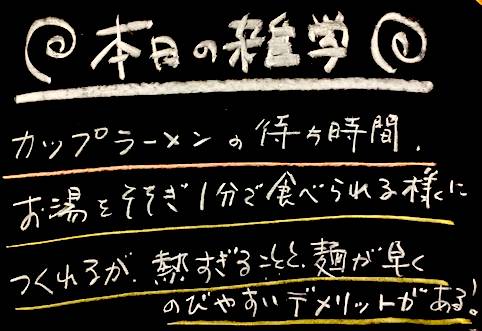 本日の雑学
カップラーメンの待ち時間、
お湯をそそぎ1分で食べられる様に
つくれるが、熱すぎることと、麺が早く
のびやすいデメリットがある!